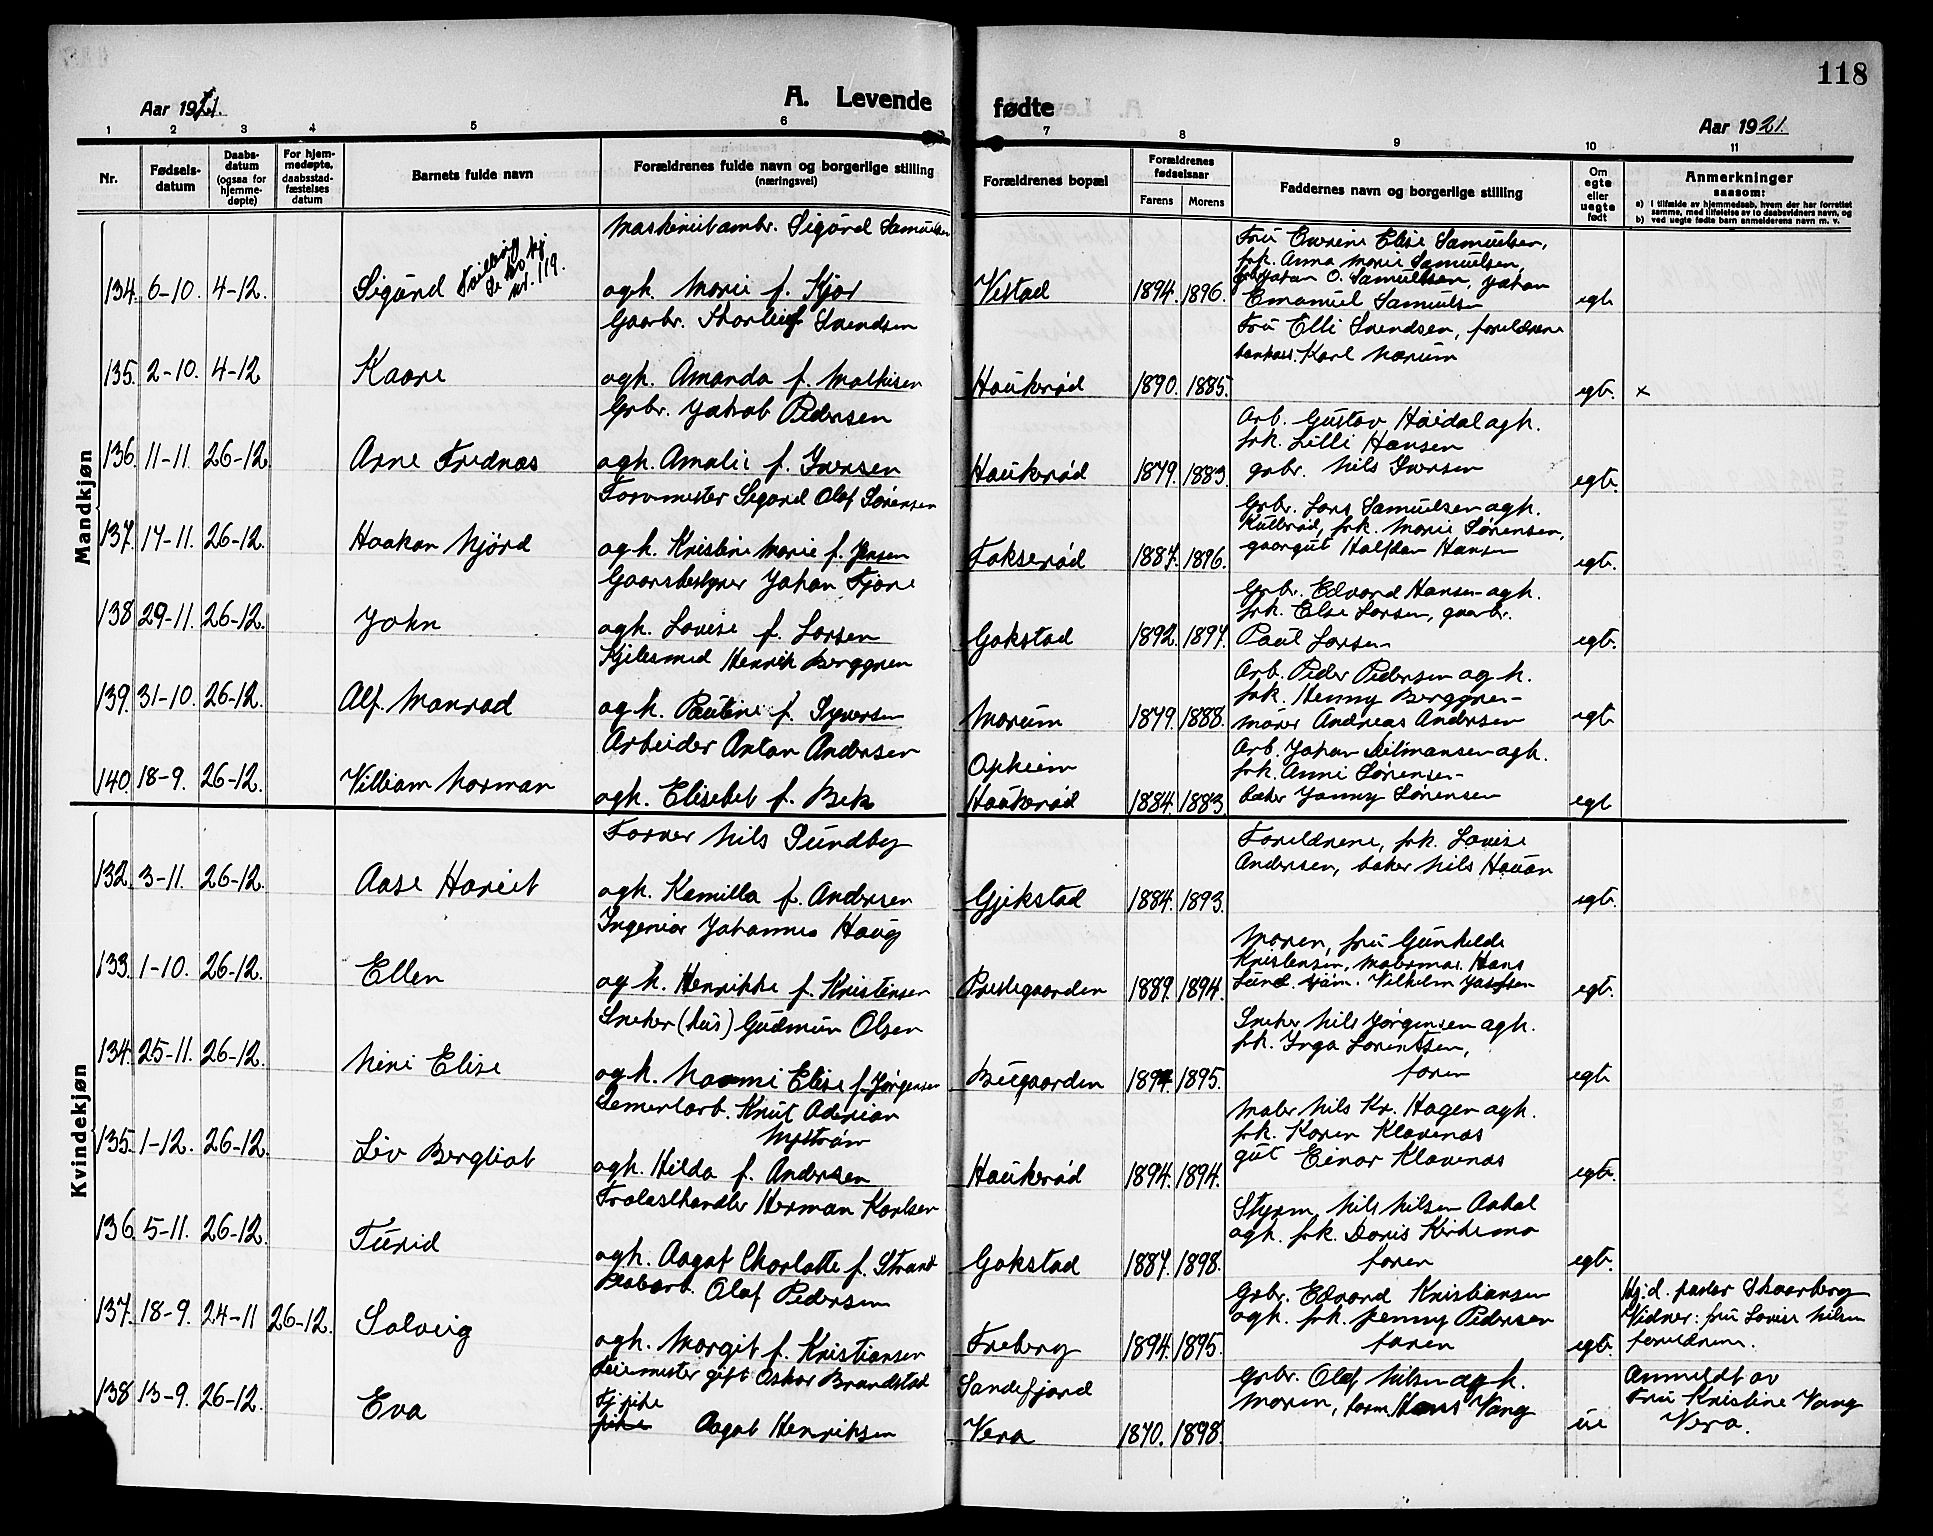 118
Aar 1921.
A. Levende fødte
Aar 1921.
1 2 3 4 5 6 7 8 9 10 11
Nr.
Fødsels-datum
Daabs-datum (ogsaa for hjemme-døpte)
For hjem-medøpte, daabsstad-fæstelses datum
Barnets fulde navn
Forældrenes fulde navn og borgerlige stilling (næringsvei)
Forældrenes bopæl
Forældrenes fødselsaar
Farens Morens
Faddernes navn og borgerlige stilling
Om egte eller uegte født
Anmerkninger saasom:
a) I tilfælde av hjemmedaab, hvem der har forrettet samme, med tilføielse av to daabsvidners navn, og
b) ved uegte fødte barn anmelderens navn m. v.
Mandkjøn
Sigurd Samuelsen
Fru Elise Samuelsen,
frk. Anna Marie Samuelsen,
O. Samuelsen, Johan
134. 6-10. 4-12. Sigurd Tvilling nr. 119. ogh. Marie f. Kjær Vestad 1894. 1896. Emanuel Samuelsen egt.
Gaarbr. Thorleif Svendsen
Fru Elli Svendsen, forældrene
Karl Morum
135. 2-10. 4-12 Kaare ogh. Amanda f. Mathisen Haukerød 1890. 1885. egt. x
Grbr. Jakob Pedersen
Arb. Gustav Haidal ogh.
frk. Lilli Hansen
136. 11-11. 26-12. Arne Frednæs ogh. Amalie f. Iversen Haukerød 1879. 1883. grbr. Nils Iversen egt.
Formester Sigurd Olaf Sørensen
Grbr. Lars Samuelsen ogh.
Kullerød, frk. Marie Sørensen,
137. 17-11. 26-12. Haakon Njörd ogh. Kristine Marie f. Jensen Fokserød 1887. 1896. gaargut Halfdan Hansen egt.
Gaarsbestyrer Johan Fjære
Grbr. Edvard Hansen ogh.
frk. Else Larsen, gaarbr.
138 29-11. 26-12. John ogh. Lovise f. Larsen Gokstad 1892. 1897. Paul Larsen egt.
Kjelesmed Henrik Berggren
Arb. Peder Pedersen ogh.
frk. Henny Berggren-
139. 31-10. 26-12. Alf Monrad ogh. Pauline f. Syversen Morum 1879. 1888. murer Andreas Andersen egt
Arbeider Anton Andersen
Opheim
Arb. Johan ogh.
frk. Anni Sørensen-
140. 18-9. 26-12. William Norman ogh. Elisebet f. Bek Haukerød 1884. 1883. baker Jonny Sørensen egt
Kvindekjøn
Farver Nils Sundby
Forældrene, frk. Lovise
Andersen, baker Nils Hauan
132. 3-11. 26-12. Aase Hariet ogh. Kamilla f. Andersen Gjekstad 1884. 1893. egt.
Ingeniør Johannes Haug
Moren, fru Gunhilde
Kristensen, Hans
133. 1-10. 26-12. Ellen ogh. Henrikke f. Kristensen Prestegaarden 1889. 1894. Lund. Vilhelm egt.
Sneker (hus) Gudmun Olsen
Sneker Nils Jörgensen ogh.
frk. Inga Lorentsen,
134. 25-11. 26-12. Nini Elise ogh. Naomi Elise f. Jørgensen Bugaarden 1894. 1895. faren egt
Sementarb. Knut Adrian
Nystrøm
Maler Nils Kr. Hagen ogh.
frk. Karen Klavenæs
135. 1-12. 26-12. Liv Bergliot ogh. Hilda f. Andersen Haukerød 1894. 1894. gut Einar Klavenæs egt.
Trælasthandler Herman Karlsen
Styrm. Nils Nilsen Aakol
ogh. frk. Doris Kirkemo
136 5-11. 26-12. Turid ogh. Aagot Charlotte f. Strand Gokstad 1887. 1898. faren egt.
Olaf Pedersen
Grbr. Edvard Kristiansen
ogh. frk. Jenny Pedersen
Hj.d. pastor Skaarberg
Vidner: fru Lovise Nilsen
137. 18-9. 24-11 26-12. Solveig ogh. Margit f. Kristiansen Freberg 1894. 1895. faren egt. forældrene.
gift Oskar Brandstad
Sandefjord
Grbr. Olaf Nilsen ogh.
Anmeldt av
138 13-9. 26-12. Eva Tj.pike Moren, Hans Vang Fru Kristine Vang
Aagot Henriksen Vera 1870. 1898. ue Vera.